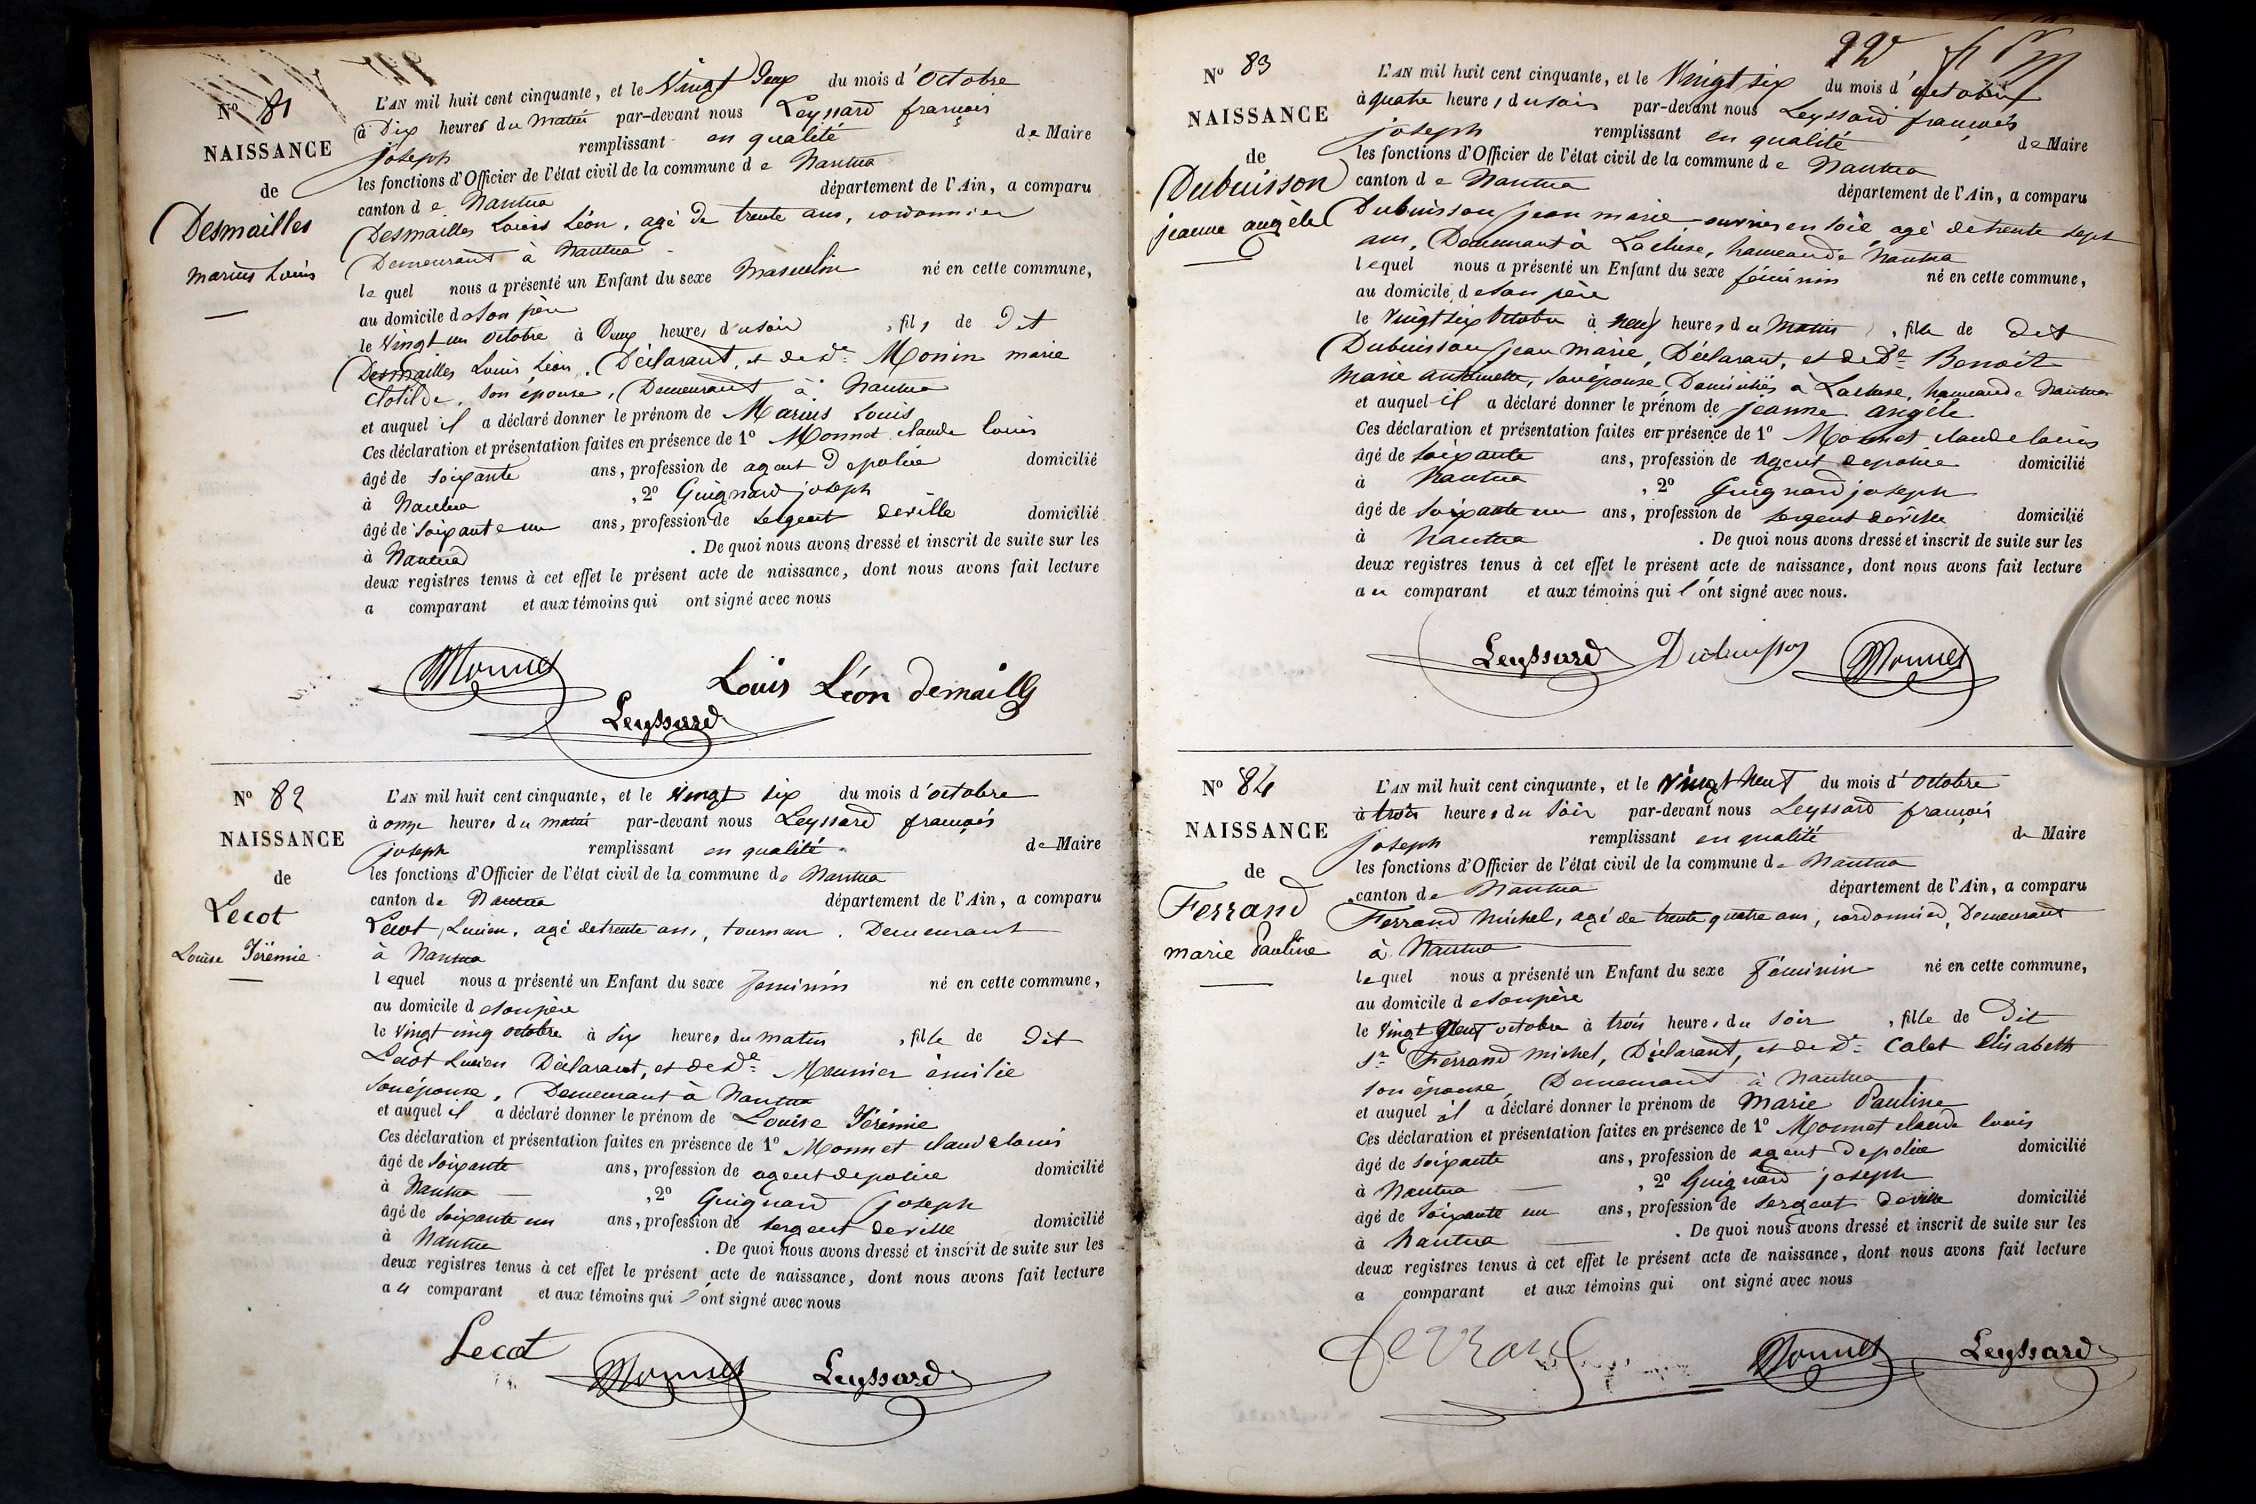 No 81
NAISSANCE
de
Desmailles
Marius Louis
L'AN mil huit cent cinquante, et le Vingt Deux du mois d'Octobre
à Dix heures du matin par-devant nous Leyssard françois
joseph remplissant en qualité de Maire
les fonctions d'Officier de l'état civil de la commune de Nantua
canton de Nantua département de l'Ain, a comparu
Desmailles Louis Léon, agé de trente ans, cordonnier
Demeurant à Nantua
lequel nous a présenté un Enfant du sexe Masculin né en cette commune,
au domicile de son père
le Vingt un octobre à Deux heures du soir, fils de Dit
Desmailles Louis Léon, Déclarant, et de de Monin marie
clotilde, son épouse, Demeurant à Nantua
et auquel il a déclaré donner le prénom de Marius Louis
Ces déclaration et présentation faites en présence de 1o Monnet claude louis
âgé de soixante ans, profession de agent de police domicilié
à Nantua, 2o Guignard joseph
âgé de soixante un ans, profession de sergent de ville domicilié
à Nantua. De quoi nous avons dressé et inscrit de suite sur les
deux registres tenus à cet effet le présent acte de naissance, dont nous avons fait lecture
a comparant et aux témoins qui ont signé avec nous
Monnet
Louis Léon demailly
Leyssard
No 82
NAISSANCE
de
Lecot
Louise Jérémie
L'AN mil huit cent cinquante, et le Vingt six du mois d'octobre
à onze heures du matin par-devant nous Leyssard françois
joseph remplissant en qualité de Maire
les fonctions d'Officier de l'état civil de la commune de Nantua
canton de Nantua département de l'Ain, a comparu
Lecot, Lucien, agé de trente ans, tourneur, Demeurant
à Nantua
lequel nous a présenté un Enfant du sexe feminin né en cette commune,
au domicile de son père
le Vingt cinq octobre à six heures du matin, fille de Dit
Lecot Lucien Déclarant, et de de Meunier émilie
son épouse, Demeurant à Nantua
et auquel il a déclaré donner le prénom de Louise Jérémie
Ces déclaration et présentation faites en présence de 1o Monnet claude louis
âgé de soixante ans, profession de agent de police domicilié
à Nantua, 2o Guignard joseph
âgé de soixante un ans, profession de sergent de ville domicilié
à Nantua. De quoi nous avons dressé et inscrit de suite sur les
deux registres tenus à cet effet le présent acte de naissance, dont nous avons fait lecture
au comparant et aux témoins qui ont signé avec nous
Lecot
Monnet
Leyssard
No 83
NAISSANCE
de
Dubuisson
jeanne angèle
L'AN mil huit cent cinquante, et le Vingt six du mois d'octobre
à quatre heures du soir par-devant nous Leyssard françois
joseph remplissant en qualité de Maire
les fonctions d'Officier de l'état civil de la commune de Nantua
canton de Nantua département de l'Ain, a comparu
Dubuisson jean marie ouvrier en soie agé de trente sept
ans, Demeurant à Lacluse, hameau de Nantua
lequel nous a présenté un Enfant du sexe féminin né en cette commune,
au domicile de son père
le Vingt six octobre à neuf heures du matin, fille de dit
Dubuisson jean marie, Déclarant, et de De Benoit
Marie antoinette, son épouse Domiciliés à Lacluse, hameau de Nantua
et auquel il a déclaré donner le prénom de jeanne angèle
Ces déclaration et présentation faites en présence de 1o Monnet claude louis
âgé de soixante ans, profession de agent de police domicilié
à Nantua, 2o Guignard joseph
âgé de soixante un ans, profession de sergent de ville domicilié
à Nantua. De quoi nous avons dressé et inscrit de suite sur les
deux registres tenus à cet effet le présent acte de naissance, dont nous avons fait lecture
au comparant et aux témoins qui l'ont signé avec nous.
Leyssard Dubuisson Monnet
No 84
NAISSANCE
de
Ferrand
marie Pauline
L'AN mil huit cent cinquante, et le Vingt Neuf du mois d'Octobre
à trois heures du soir par-devant nous Leyssard françois
joseph remplissant en qualité de Maire
les fonctions d'Officier de l'état civil de la commune de Nantua
canton de Nantua département de l'Ain, a comparu
Ferrand Michel, agé de trente quatre ans, cordonnier, Demeurant
à Nantua
lequel nous a présenté un Enfant du sexe Féminin né en cette commune,
au domicile de son père
le Vingt Neuf octobre à trois heures du soir, fille de Dit
Sr Ferrand Michel, Déclarant, et de de Calet Elisabeth
son épouse, Demeurant à Nantua
et auquel il a déclaré donner le prénom de Marie Pauline
Ces déclaration et présentation faites en présence de 1o Monnet claude louis
âgé de soixante ans, profession de agent de police domicilié
à Nantua, 2o Guignard joseph
âgé de soixante un ans, profession de sergent de ville domicilié
à Nantua. De quoi nous avons dressé et inscrit de suite sur les
deux registres tenus à cet effet le présent acte de naissance, dont nous avons fait lecture
a comparant et aux témoins qui ont signé avec nous
ferrand
Monnet
Leyssard